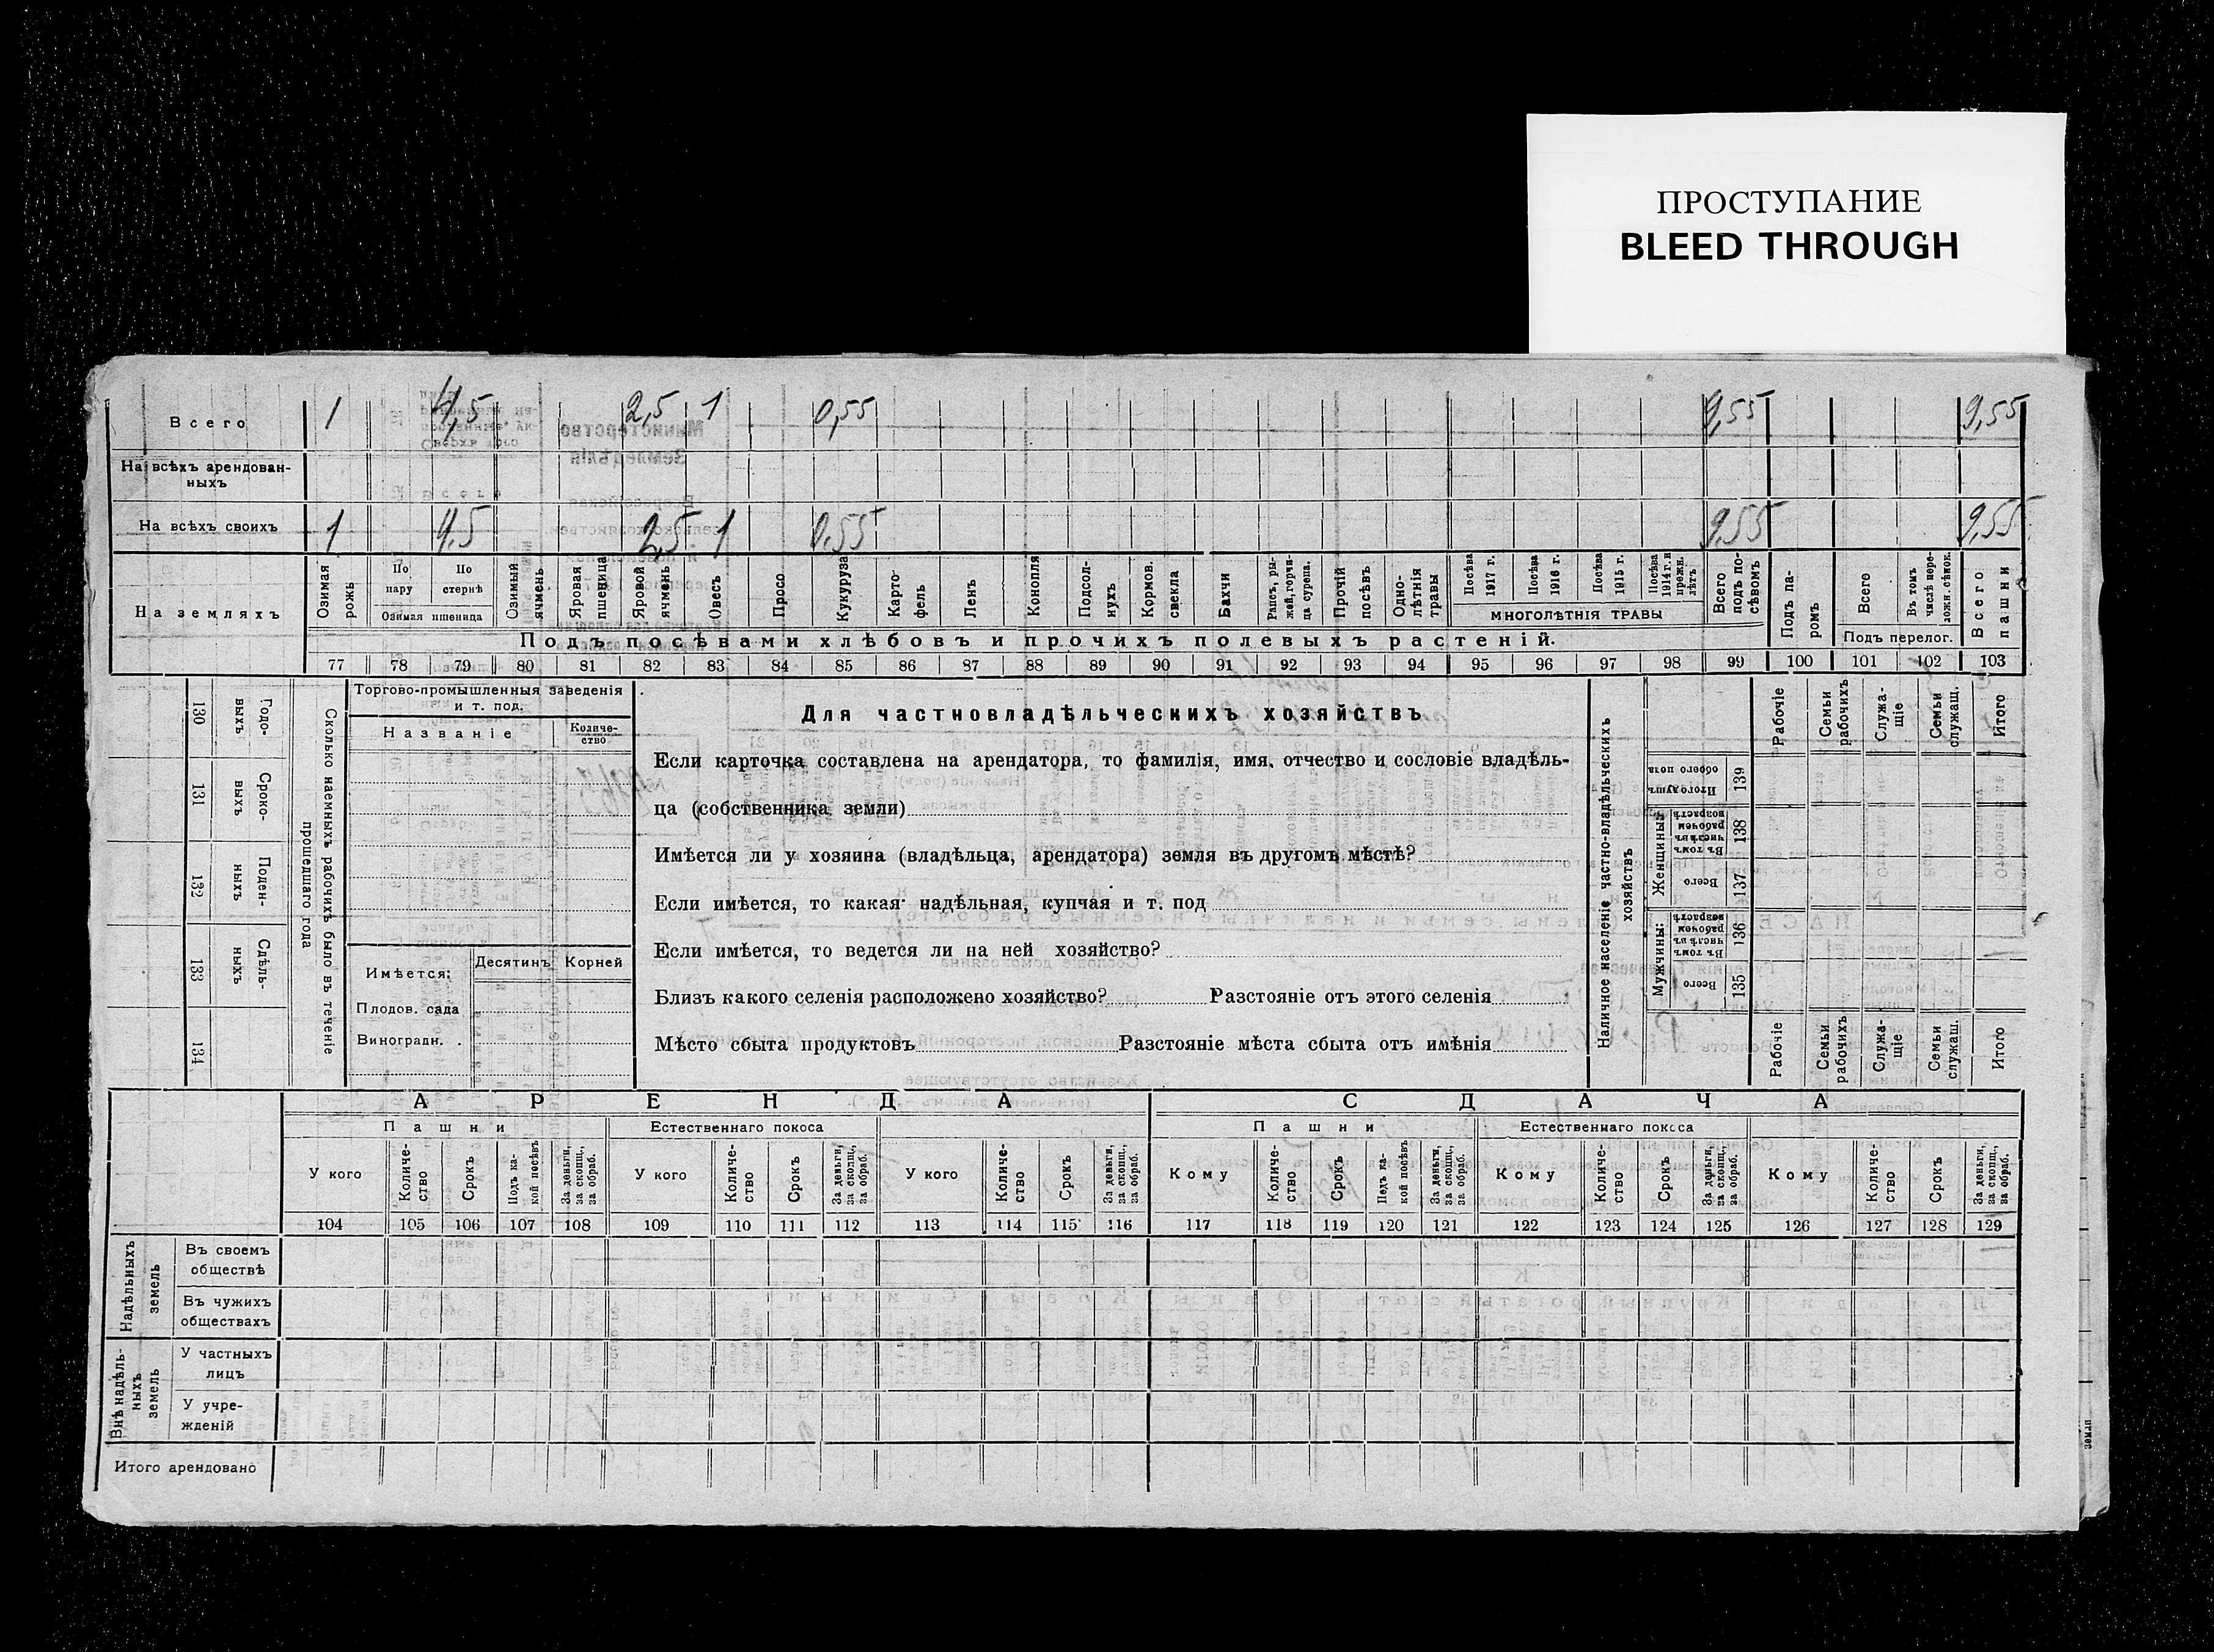 ПРОСТУПАНИЕ
BLEED THROUGH
Всего 1 4,5 2,5 1 0,55 9,55 9,55
На всѣхъ арендован-
ныхъ
На всѣхъ своихъ 1 4,5 2,5 1 0,55 9,55 9,55
На земляхъ
Озимая рожь
По пару
По стернѣ
Озимая пшеница
Озимый ячмень
Яровая пшеница
Яровой ячмень
Овесъ
Просо
Кукуруза
Карто-
фель
Ленъ
Конопля
Подсол-
нухъ
Кормов. свекла
Бахчи
Рапсъ, ры-
жей, горчи-
ца сурепа.
Прочій посѣвъ
Одно-
лѣтнія травы
Посѣва 1917 г.
Посѣва 1916 г.
Посѣва 1915 г.
Посѣва 1914 г. и прежн. лѣтъ
МНОГОЛѢТНІЯ ТРАВЫ
Всего подъ по-
сѣвомъ
Подъ па-
ромъ
Всего
Въ томъ числѣ пере-
ложн. сѣнок.
Подъ перелог.
Всего пашни
Подъ посѣвами хлѣбовъ и прочихъ полевыхъ растеній.
77 78 79 80 81 82 83 84 85 86 87 88 89 90 91 92 93 94 95 96 97 98 99 100 101 102 103
130 Годо-
выхъ
131 Сроко-
выхъ
132 Поден-
ныхъ
133 Сдѣль-
ныхъ
134
Сколько наемныхъ рабочихъ было въ теченіе
прошедшаго года
Торгово-промышленныя заведенія
и т. под.
Названіе
Количе-
ство
Имѣется:
Десятинъ Корней
Плодов. сада
Виноградн.
Для частновладѣльческихъ хозяйствъ
Если карточка составлена на арендатора, то фамилія, имя, отчество и сословіе владѣль-
ца (собственника земли)
Имѣется ли у хозяина (владѣльца, арендатора) земля въ другомъ мѣстѣ?
Если имѣется, то какая надѣльная, купчая и т. под
Если имѣется, то ведется ли на ней хозяйство?
Близъ какого селенія расположено хозяйство? Разстояніе отъ этого селенія
Мѣсто сбыта продуктовъ Разстояніе мѣста сбыта отъ имѣнія
Наличное населеніе частно-владѣльческихъ
хозяйствъ
Рабочіе
Семьи рабочихъ
Служа-
щіе
Семьи служащ.
Итого
Итого душъ обоего пола 139
Женщины:
Въ томъ числѣ въ рабочемъ возрастѣ 138
Всего 137
Мужчины:
Въ томъ числѣ въ рабочемъ возрастѣ 136
Всего 135
Рабочіе
Семьи рабочихъ
Служа-
щіе
Семьи служащ.
Итого
АРЕНДА СДАЧА
Пашни Естественнаго покоса Пашни Естественнаго покоса
У кого
Количе-
ство
Срокъ
Подъ ка-
кой посѣвъ
За деньги, за скопщ., за обраб.
У кого
Количе-
ство
Срокъ
За деньги, за скопщ., за обраб.
У кого
Количе-
ство
Срокъ
За деньги, за скопщ., за обраб.
Кому
Количе-
ство
Срокъ
Подъ ка-
кой посѣвъ
За деньги, за скопщ., за обраб.
Кому
Количе-
ство
Срокъ
За деньги, за скопщ., за обраб.
Кому
Количе-
ство
Срокъ
За деньги, за скопщ., за обраб.
104 105 106 107 108 109 110 111 112 113 114 115 116 117 118 119 120 121 122 123 124 125 126 127 128 129
Надѣльныхъ
земель
Въ своемъ
обществѣ
Въ чужихъ
обществахъ
Внѣ надѣль-
ныхъ
земель
У частныхъ
лицъ
У учре-
жденій
Итого арендовано
земли